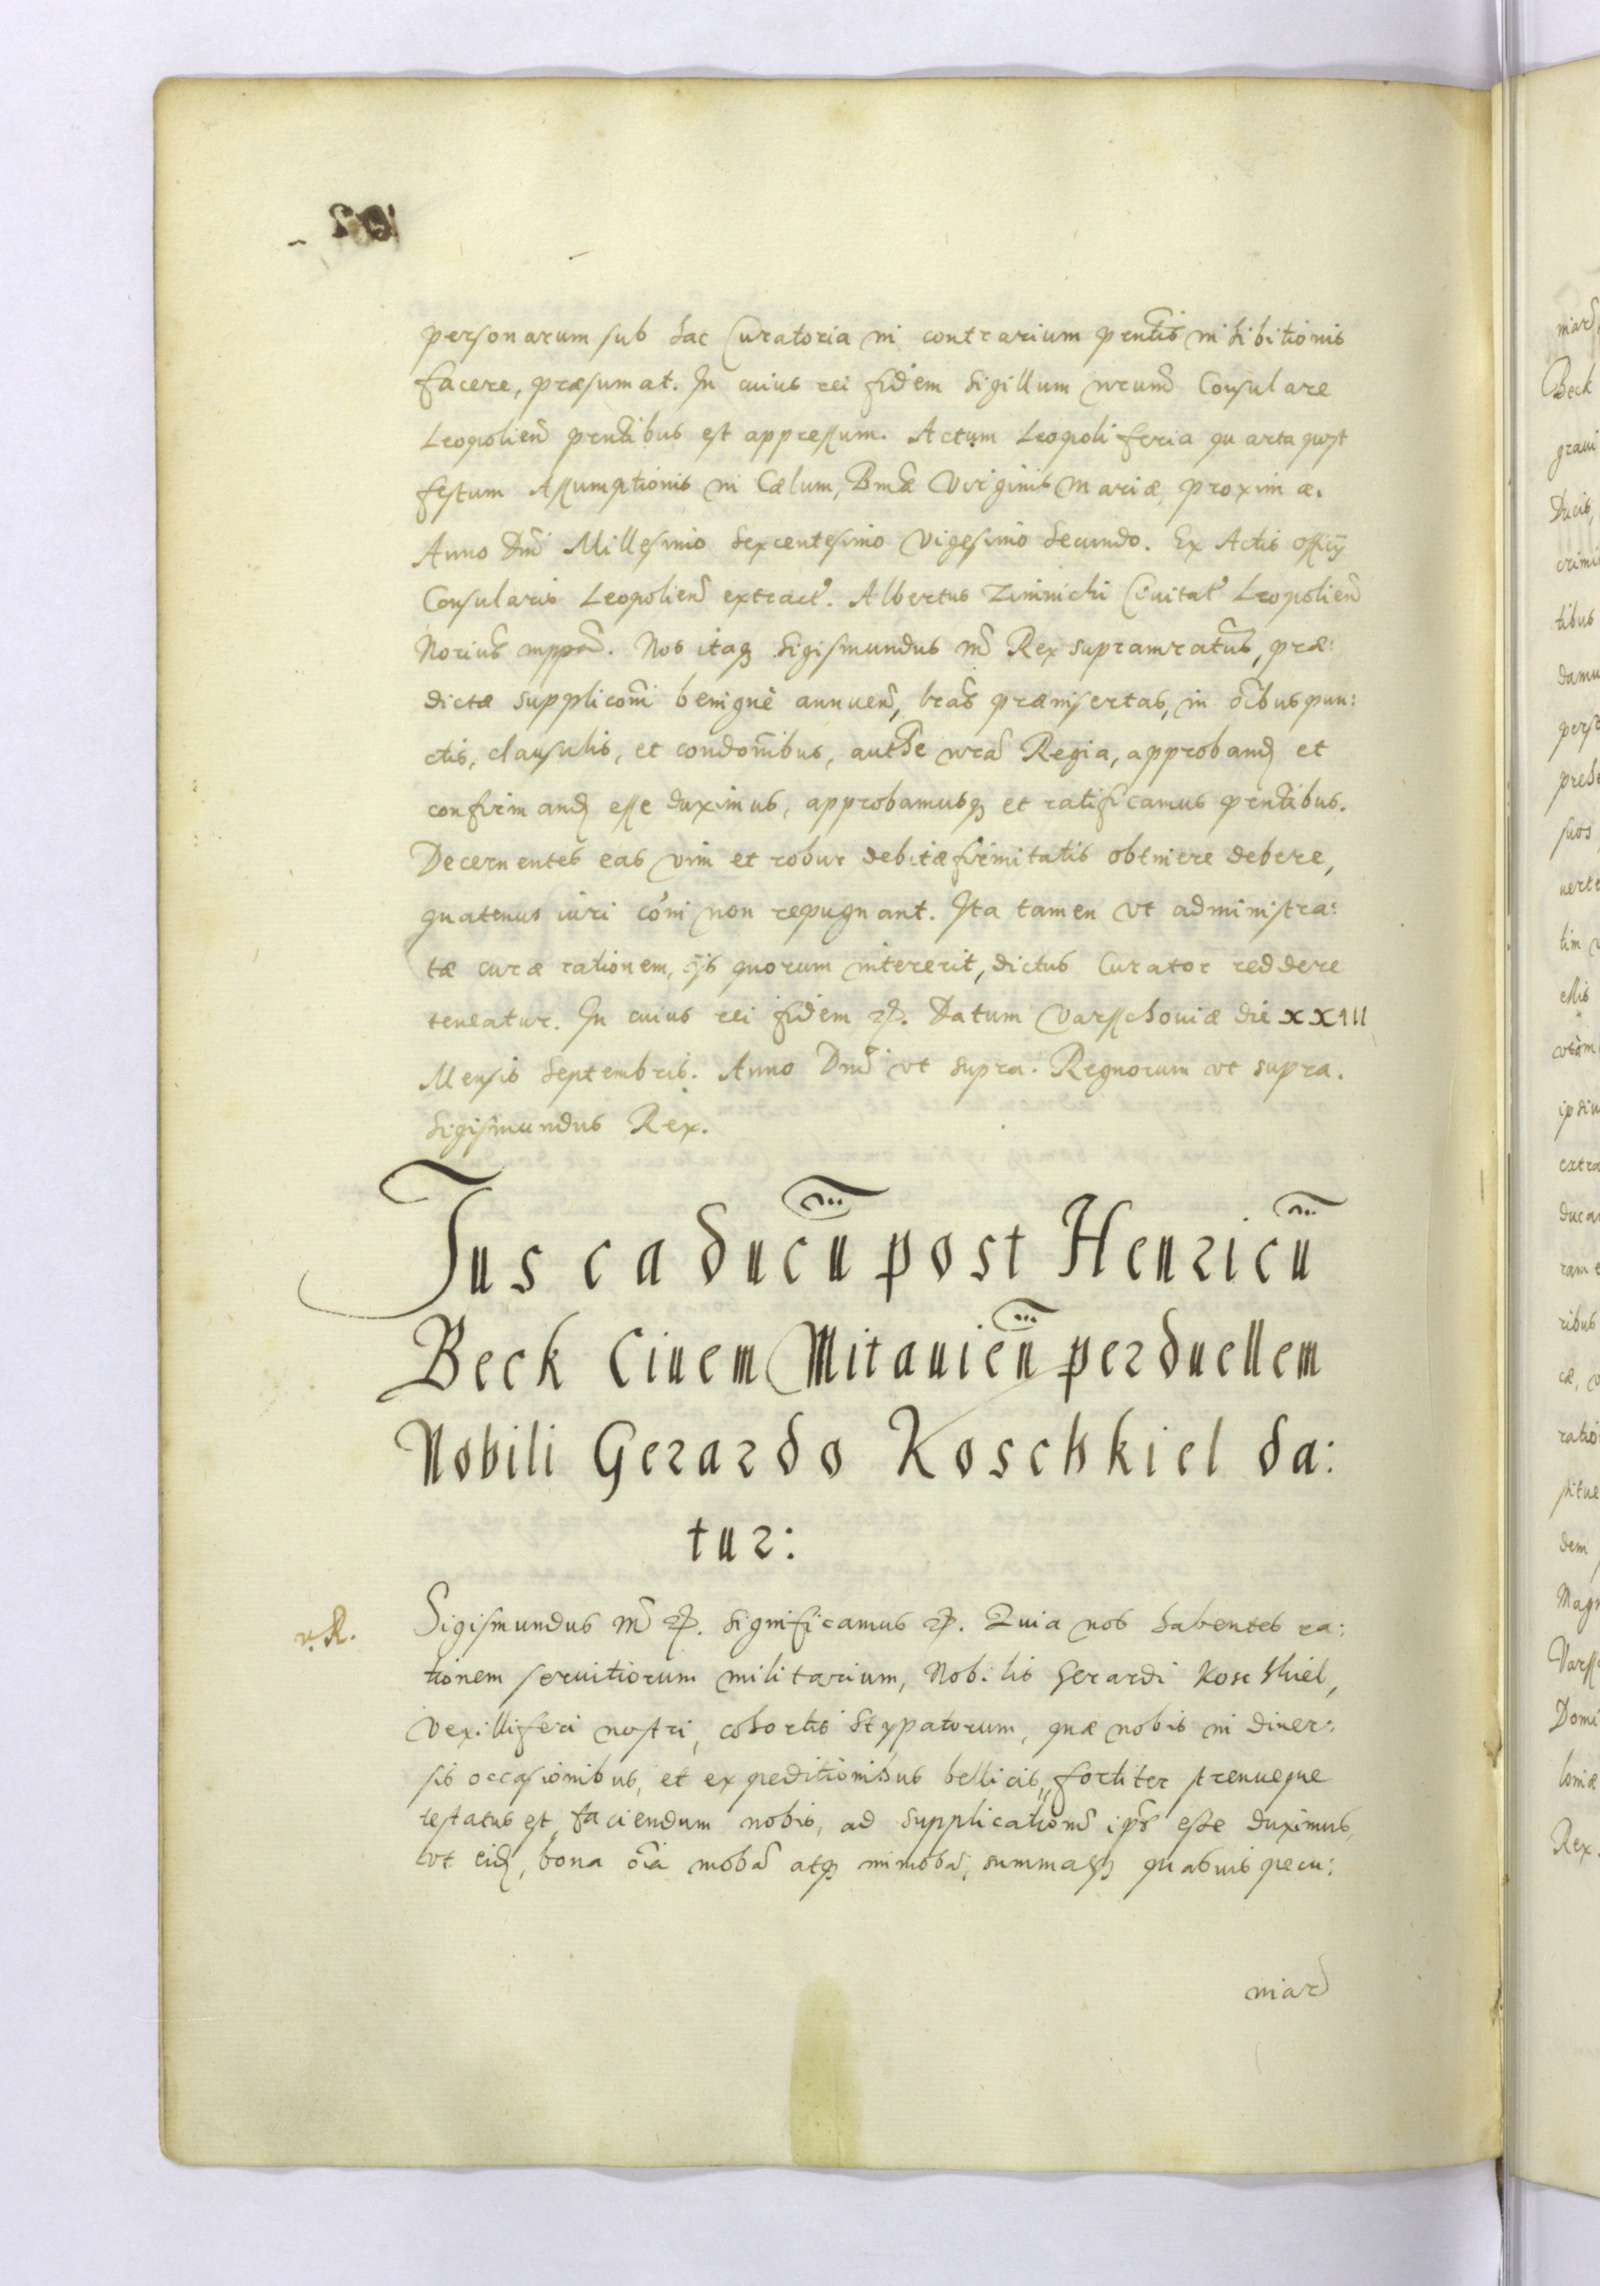 personarum sub hac Curatoria in contrarium pntis inhibitionis
facere, præsumat. In cuius rei fidem Sigillum nrum Consulare
Leopolien pntibus est appressum. Actum Leopoli feria quarta post
festum Assumptionis in Cælum, Bmæ Virginis Mariæ, proximæ.
Anno Dni Millesimo Sexcentesimo Vigesimo Secundo. Ex Actis Officÿ
Consularis Leopolien extract. Albertus Zimnichi Ciuitat Leopolien
Norius mppa. Nos itaq Sigismundus III Rex supramratus, præ:
dictæ suppliconi benignè annuen, lras præinsertas, in oibus pun:
ctis, clausulis, et condonibus, authte nra Regia, approband et
confirmand esse duximus, approbamusq et ratificamus pntibus.
Decernentes eas vim et robur debitæ firmitatis obtinere debere,
quatenus iuri coni non repugnant. Ita tamen vt administra:
tæ curæ rationem, ijs quorum intererit, dictus Curator reddere
teneatur. In cuius rei fidem etc. Datum Varsschouiæ die XXIII
Mensis Septembris. Anno Dni vt supra. Regnorum vt supra.
Sigismundus Rex.
Jus caducu post Henricu
Beck Ciuem Mitauien perduellem
Nobili Gerardo Koschkiel da:
tur:
v. R.
Sigismundus III etc. Significamus etc. Quia nos habentes ra:
tionem seruitiorum militarium, Nobilis Gerardi Koschkiel,
Vexilliferi nostri, cohortis Stypatorum, quæ nobis in diuer:
sis occasionibus, et expeditionibus bellicis, fortiter strenueque
testatus est, faciendum nobis, ad supplication ips esse duximus,
vt eid, bona oia moba atq immoba, summasq quasuis pecu:
niar